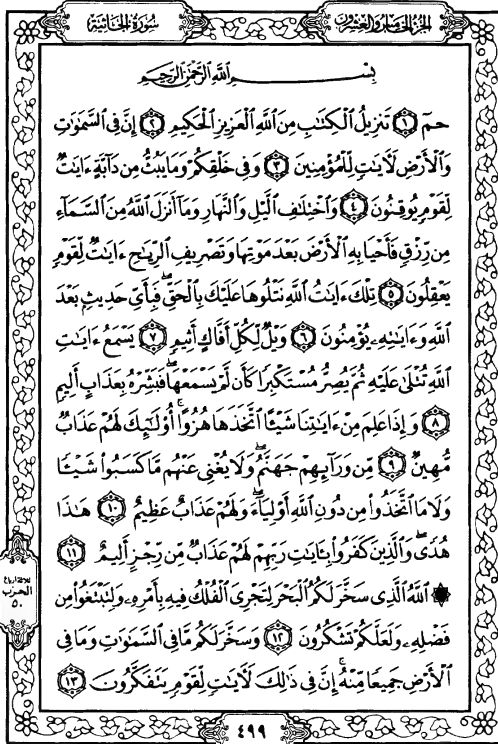 الجزء الخامس والعشرون
سورة الجاثية
بِسْمِ اللَّهِ الرَّحْمَٰنِ الرَّحِيمِ
حمٓ ١ تَنزِيلُ الْكِتَابِ مِنَ اللَّهِ الْعَزِيزِ الْحَكِيمِ ٢ إِنَّ فِي السَّمَٰوَٰتِ
وَالْأَرْضِ لَآيَٰتٍ لِّلْمُؤْمِنِينَ ٣ وَفِي خَلْقِكُمْ وَمَا يَبُثُّ مِن دَآبَّةٍ ءَايَٰتٌ
لِّقَوْمٍ يُوقِنُونَ ٤ وَاخْتِلَٰفِ الَّيْلِ وَالنَّهَارِ وَمَآ أَنزَلَ اللَّهُ مِنَ السَّمَآءِ
مِن رِّزْقٍ فَأَحْيَا بِهِ الْأَرْضَ بَعْدَ مَوْتِهَا وَتَصْرِيفِ الرِّيَٰحِ ءَايَٰتٌ لِّقَوْمٍ
يَعْقِلُونَ ٥ تِلْكَ ءَايَٰتُ اللَّهِ نَتْلُوهَا عَلَيْكَ بِالْحَقِّ ۖ فَبِأَيِّ حَدِيثٍ بَعْدَ
اللَّهِ وَءَايَٰتِهِۦ يُؤْمِنُونَ ٦ وَيْلٌ لِّكُلِّ أَفَّاكٍ أَثِيمٍ ٧ يَسْمَعُ ءَايَٰتِ
اللَّهِ تُتْلَىٰ عَلَيْهِ ثُمَّ يُصِرُّ مُسْتَكْبِرًا كَأَن لَّمْ يَسْمَعْهَا ۖ فَبَشِّرْهُ بِعَذَابٍ أَلِيمٍ
٨ وَإِذَا عَلِمَ مِنْ ءَايَٰتِنَا شَيْـًٔا اتَّخَذَهَا هُزُوًا ۚ أُو۟لَٰٓئِكَ لَهُمْ عَذَابٌ
مُّهِينٌ ٩ مِّن وَرَآئِهِمْ جَهَنَّمُ ۖ وَلَا يُغْنِي عَنْهُم مَّا كَسَبُوا شَيْـًٔا
وَلَا مَا اتَّخَذُوا مِن دُونِ اللَّهِ أَوْلِيَآءَ ۖ وَلَهُمْ عَذَابٌ عَظِيمٌ ١٠ هَٰذَا
هُدًى ۖ وَالَّذِينَ كَفَرُوا بِـَٔايَٰتِ رَبِّهِمْ لَهُمْ عَذَابٌ مِّن رِّجْزٍ أَلِيمٌ ١١
۞ اللَّهُ الَّذِي سَخَّرَ لَكُمُ الْبَحْرَ لِتَجْرِيَ الْفُلْكُ فِيهِ بِأَمْرِهِۦ وَلِتَبْتَغُوا مِن
فَضْلِهِۦ وَلَعَلَّكُمْ تَشْكُرُونَ ١٢ وَسَخَّرَ لَكُم مَّا فِي السَّمَٰوَٰتِ وَمَا فِي
الْأَرْضِ جَمِيعًا مِّنْهُ ۚ إِنَّ فِي ذَٰلِكَ لَآيَٰتٍ لِّقَوْمٍ يَتَفَكَّرُونَ ١٣
الحزب
٥٠
٤٩٩